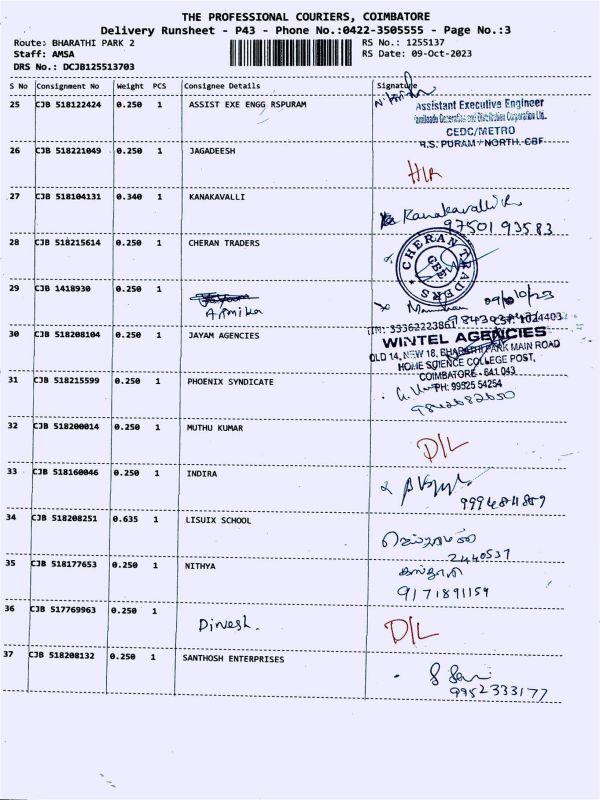 THE PROFESSIONAL COURIERS, COIMBATORE
Delivery Runsheet - P43 - Phone No.:0422-3505555 - Page No.:3
Route: BHARATHI PARK 2 RS No.: 1255137
Staff: AMSA RS Date: 09-Oct-2023
DRS No.: DCJB125513703
S No Consignment No Weight PCS Consignee Details Signature
25 CJB 518122424 0.250 1 ASSIST EXE ENGG RSPURAM
Assistant Executive Engineer
Tamilnadu Generation and Distribution Corporation Ltd.
CEDC/METRO
R.S. PURAM / NORTH, CBF
26 CJB 518221049 0.250 1 JAGADEESH
27 CJB 518104131 0.340 1 KANAKAVALLI
Kanakavalli R
9750193583
28 CJB 518215614 0.250 1 CHERAN TRADERS
CHERAN TRADERS
CBE
29 CJB 1418930 0.250 1 Armika
09/10/23
30 CJB 518208104 0.250 1 JAYAM AGENCIES
TIN: 33362223861 CST: 1024403
WINTEL AGENCIES
OLD 14, NEW 18, BHARATHI PARK MAIN ROAD
HOME SCIENCE COLLEGE POST,
COIMBATORE - 641 043
PH: 99525 54254
31 CJB 518215599 0.250 1 PHOENIX SYNDICATE
32 CJB 518200014 0.250 1 MUTHU KUMAR D/L
33 CJB 518160046 0.250 1 INDIRA
34 CJB 518208251 0.635 1 LISUIX SCHOOL
2440537
35 CJB 518177653 0.250 1 NITHYA
9171891154
36 CJB 517769963 0.250 1 Dinesh. D/L
37 CJB 518208132 0.250 1 SANTHOSH ENTERPRISES
9952333177